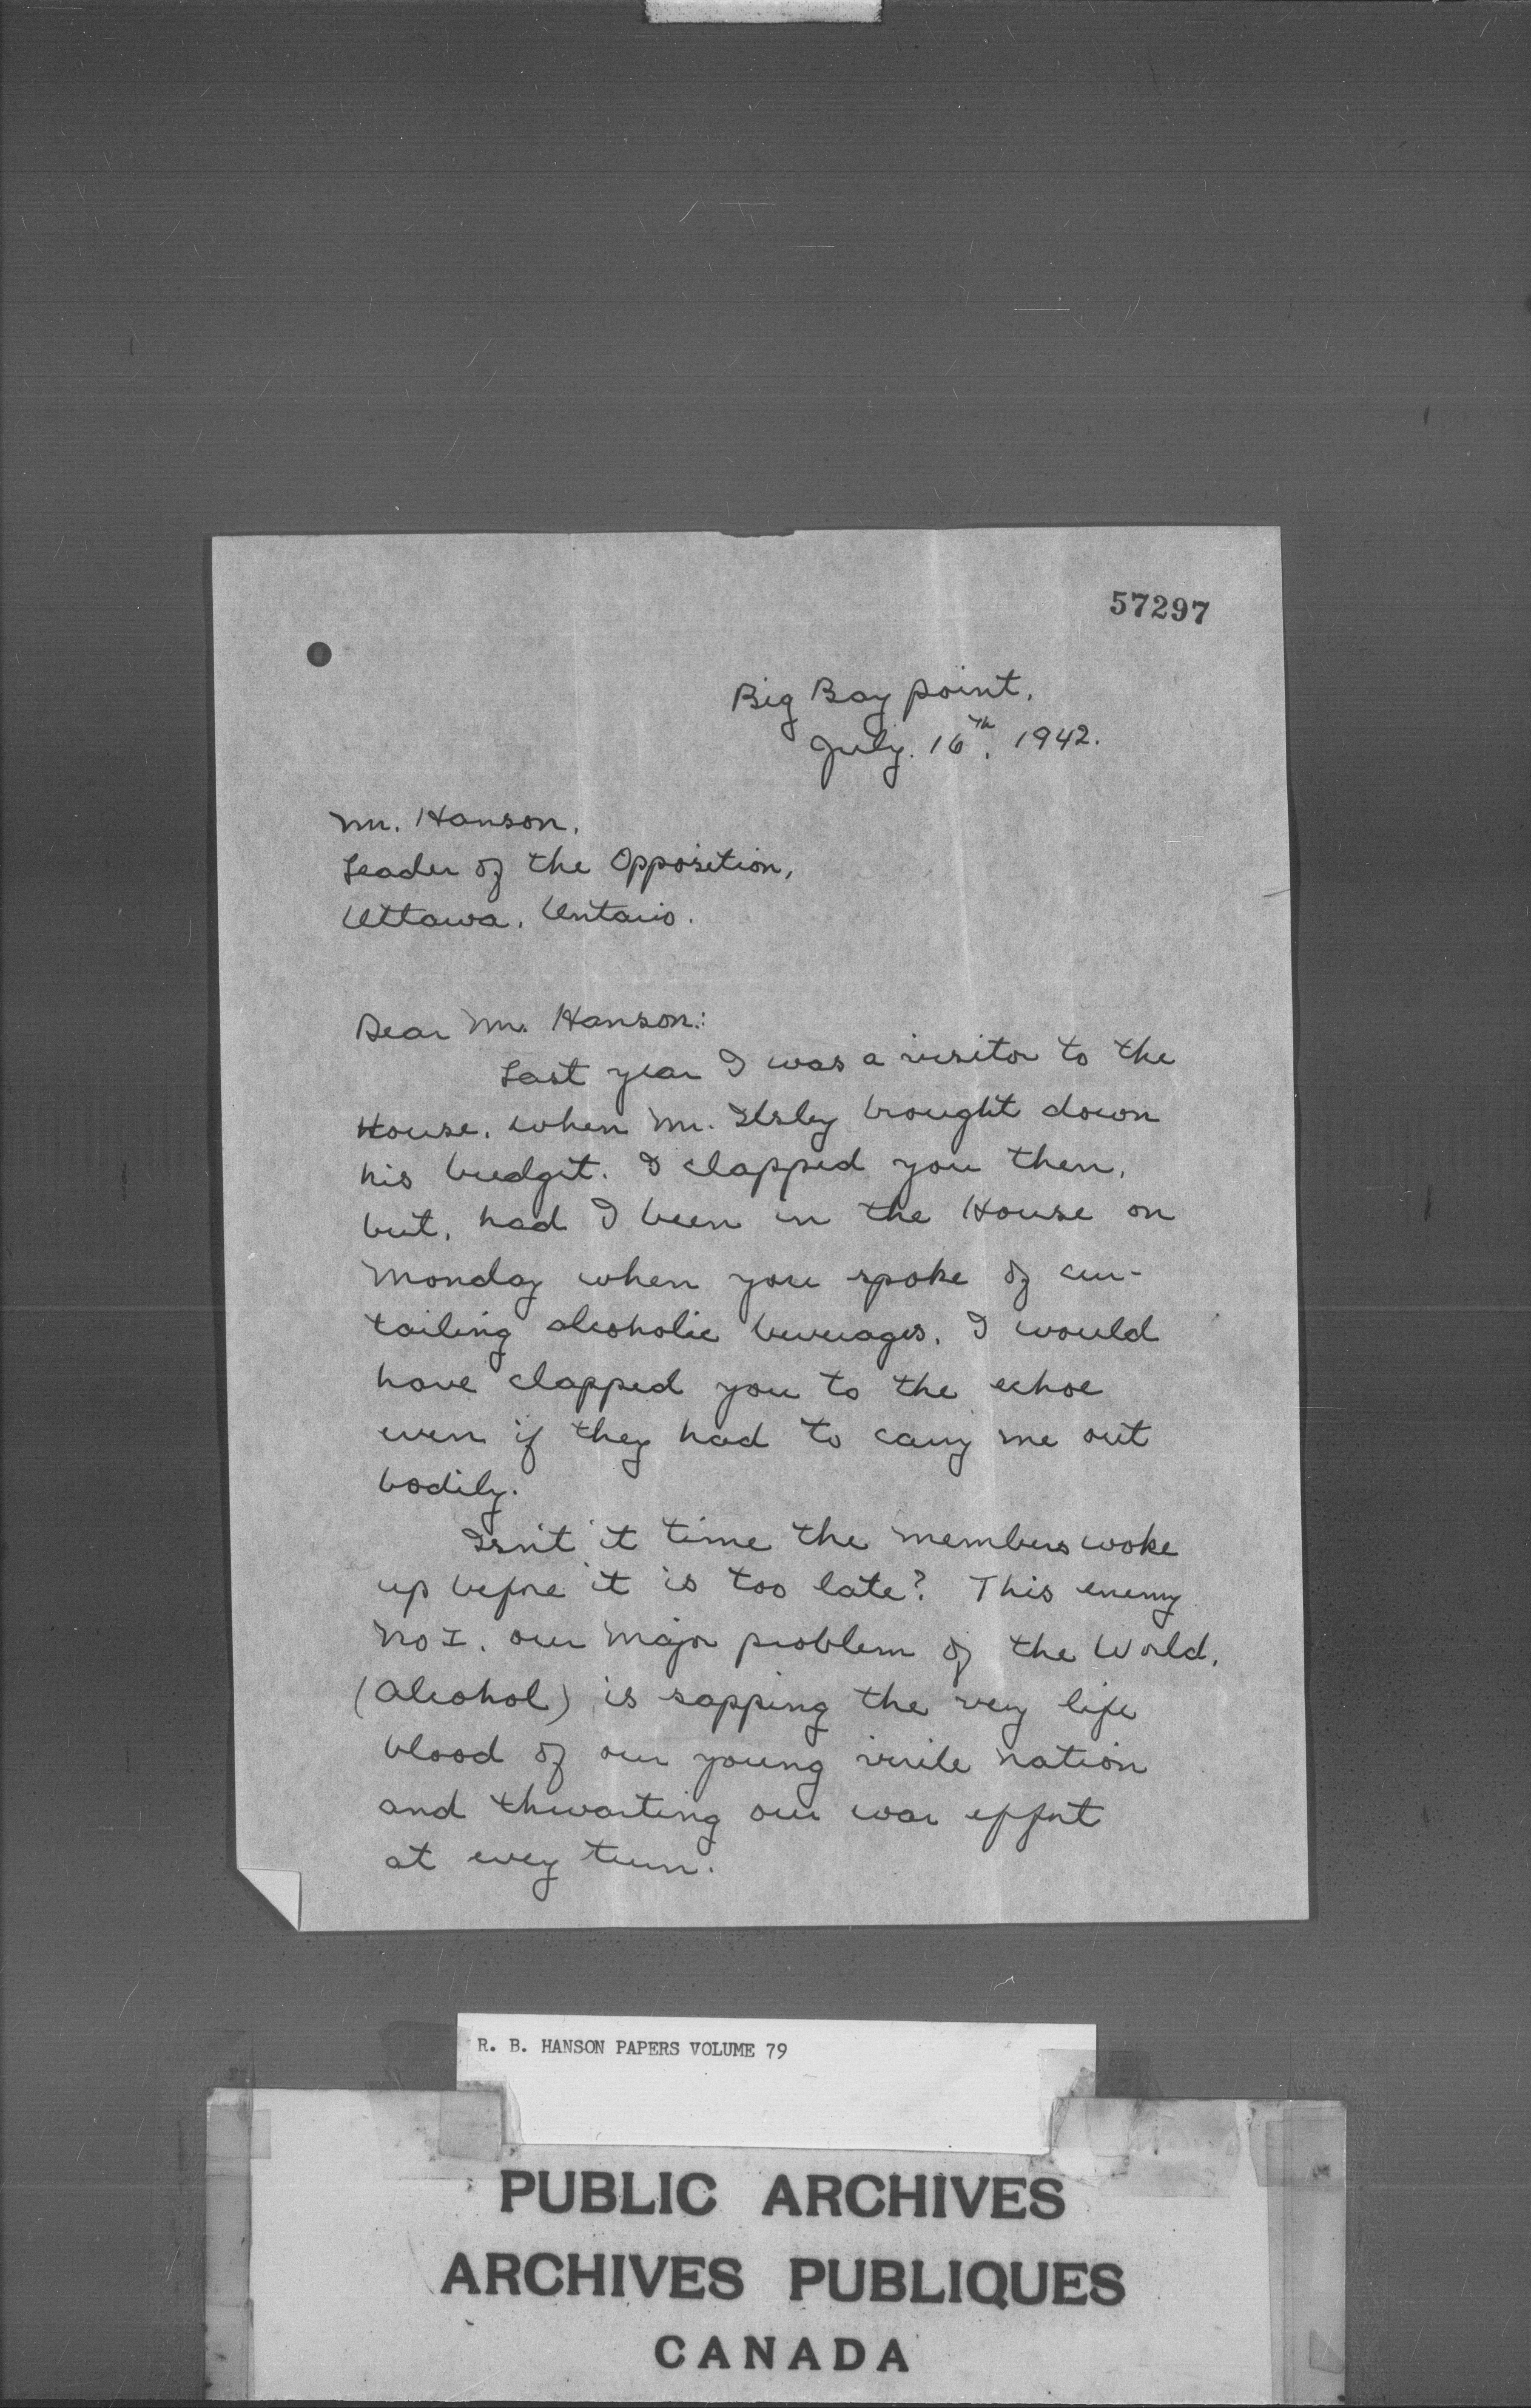 57297
Big Bay Point,
July. 16th, 1942.
Mr. Hanson,
Leader of the Opposition,
Ottawa, Ontario.
Dear Mr. Hanson:
Last year I was a visitor to the
House, when Mr. Ilsley brought down
his budget. I clapped you then,
but, had I been in the House on
Monday when you spoke of cur-
tailing alcoholic beverages, I would
have clapped you to the echoe
even if they had to carry me out
bodily.
Isn't it time the members woke
up before it is too late? This enemy
No I, our major problem of the World,
(Alcohol) is sapping the very life
blood of our young virile nation
and thwarting our war effort
at every turn.
R. B. HANSON PAPERS VOLUME 79
PUBLIC ARCHIVES
ARCHIVES PUBLIQUES
CANADA